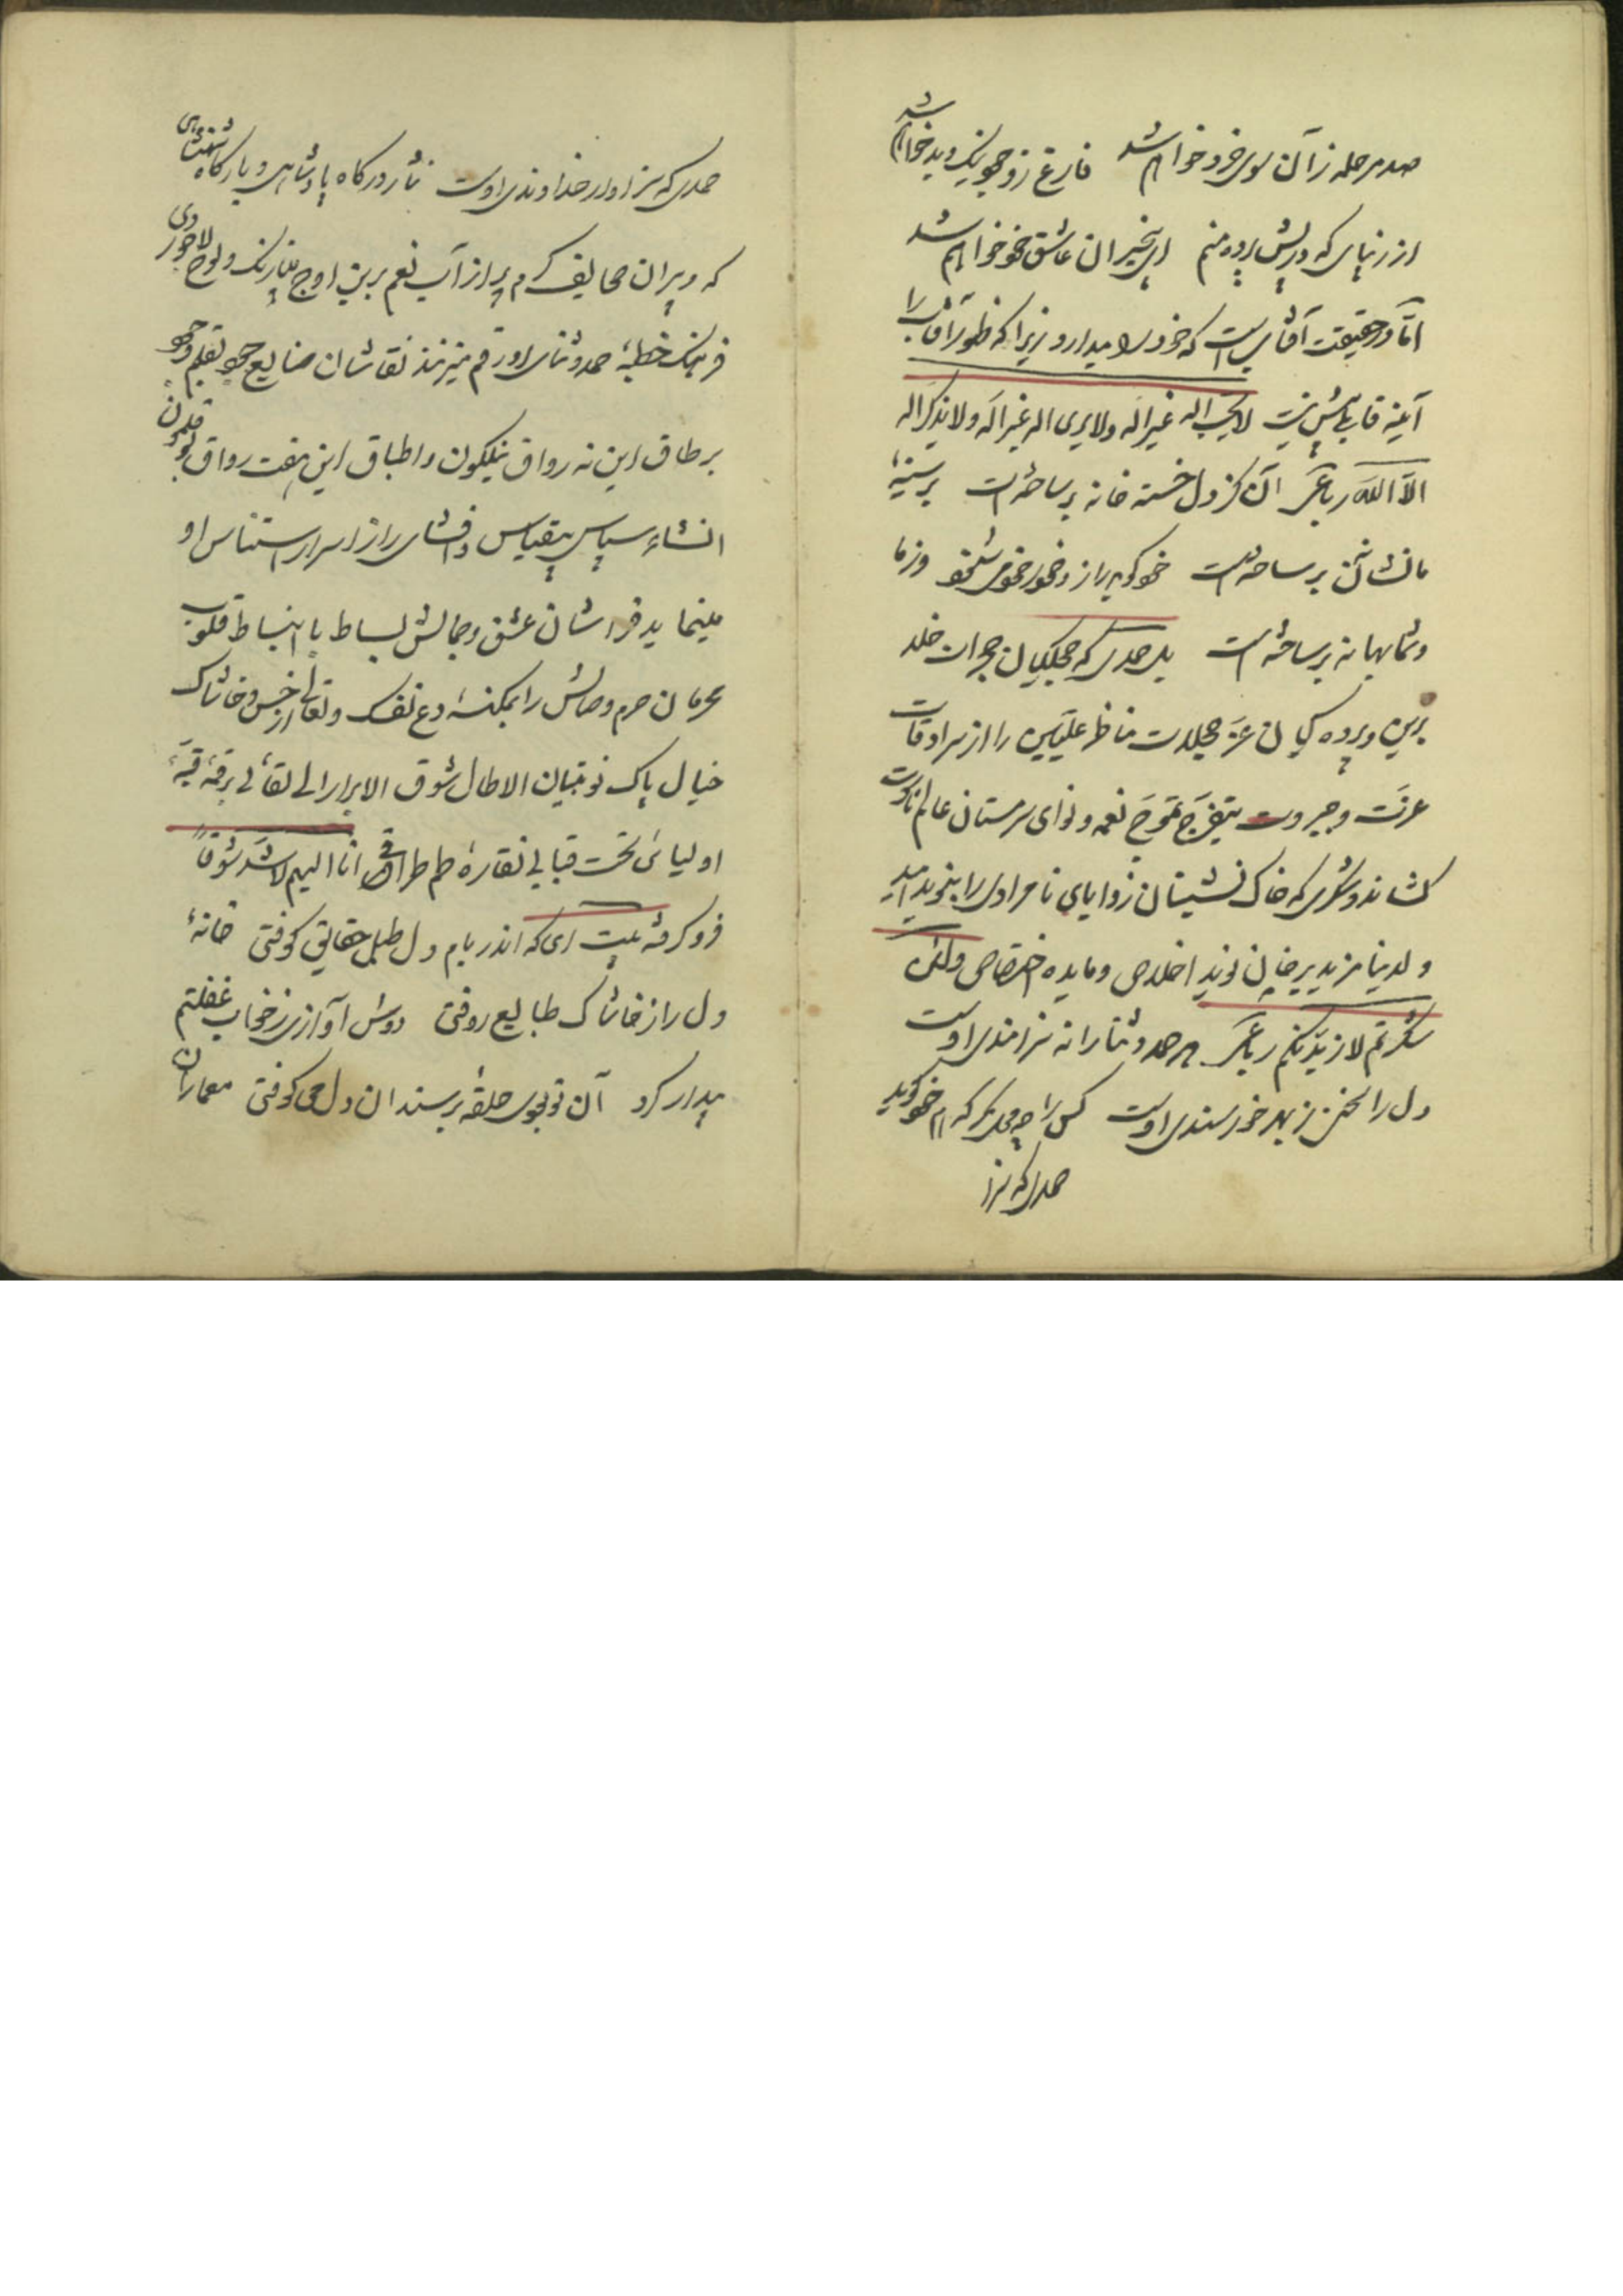 صد مرحله زآن سوی خرد خواهم شد فارغ ز وجود نیک و بد خواهم شد
از زیبای که در پس پرده منم ای بیخبران عاشق خود خواهم شد
امّا در حقیقت آفتابی است که خود را میدارد زیرا که ظهور آفتاب را
آینه قابلی پیش نیست لا یحب الله غیر الله ولا یری الله غیر الله ولا یذکر الله
الّا الله رباعی آن کز دل خسته خانه بر ساخته است بر سینهٔ
ما نشانش بر ساخته است خود گوید راز و خود خود میشنود وز ما
و شما بهانه بر ساخته است بل حمدی که حجلگیان حجرات خلد
برین و پرده گیان عز حجلات مناظر علیین را از سرادقات
عزت و جبروت بتفرج تموج نغمه و نوای سرمستان عالم ناسوت
کشاند و شکری که خاک نشینان زوایای نامرادی را بنوید امید
ولدینا مزید بر خوان نوید اخلاص و مایده اختصاص ولئن
شکرتم لازیدنکم رباعی هر حمد و ثنا را نه سزامندی اوست
دل را بخش ز بهر خرسندی اوست کس را چه محل که هم خود گوید
حمدی که سزا
حمدی که سزاوار خداوندی اوست نثار درگاه پادشاهی و بارگاه شهنشاهی
که دبیران صحایف کرم پر از آب نعم برین اوج مینارنگ و لوح لاجوردی
فرهنگ خطبهٔ حمد و ثنای او رقم میزنند نقاشان صنایع جود بقلم وجود
بر طاق این نه رواق نیلگون و اطباق این هفت رواق بوقلمون
انشاء سپاس بیقیاس و افشای راز اسرار استیناس او
مینماید فراشان عشق و جمالش بساط با انبساط قلوب
محرمان حرم وصالش را بمکنسهٔ دع نفسک و تعال از خس و خاشاک
خیال پاک نوبتیان الا طال شوق الابرار الی لقائی بر قبهٔ
اولیائی تحت قبابی نقارهٔ طمطراق انا الیهم لاشد شوقاً
فرو کوفته بیت ای که اندر بام دل طبل حقایق کوفتی خانهٔ
دل را ز خاشاک طبایع روفتی دوش آوازی ز خواب غفلتم
بیدار کرد آن تو بودی حلقه بر سندان دل می کوفتی معماران